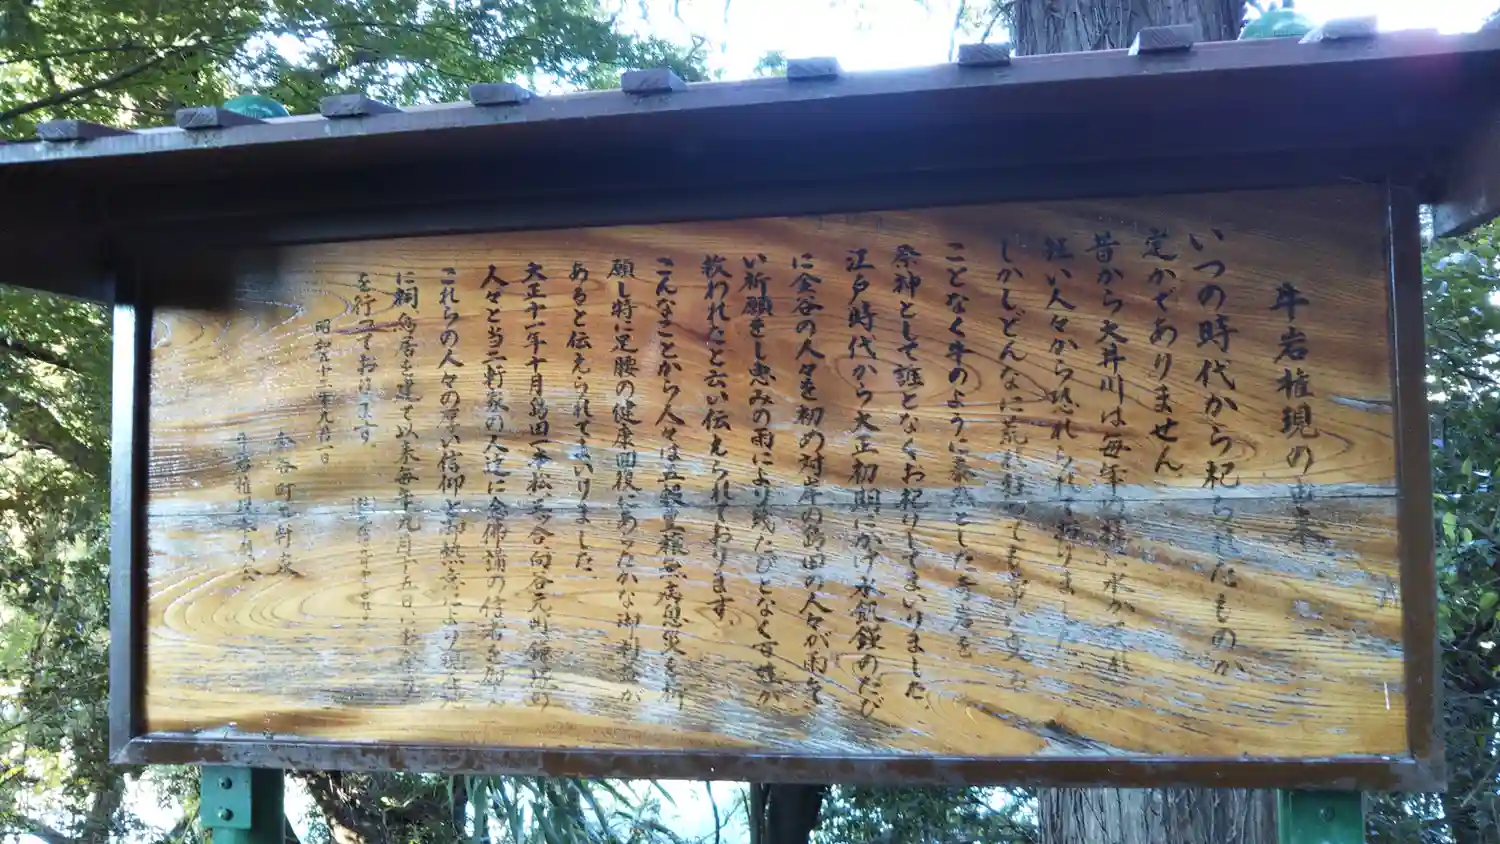 牛岩権現の由来
いつの時代から祀られたものか
定かでありません
昔から大井川は毎年の様に水が
狂い人々から恐れられて
しかしどんなに荒れ狂っても
ことなく牛のように
祭神として誰となくお祀りしてまいりました
江戸時代から大正初期にかけ水飢饉のたび
に金谷の人々を初め対岸の島田の人々が雨乞
い祈願をし恵みの雨により幾たびとなく百姓が
救われたと云い伝えられております
こんなことから人々は五穀豊穣無病息災を祈
願し特に足腰の健康回復にあらたかな御利益が
あると伝えられてまいりました
大正十一年十月島田一本松金谷向谷元町
人々と当二軒家の人達に念佛講の信者を
これらの人々の厚い信仰と熱意により
に祠鳥居を建て以来毎年九月十五日に
を行っております
昭和五十二年九月一日
金谷町二軒家
牛岩権現